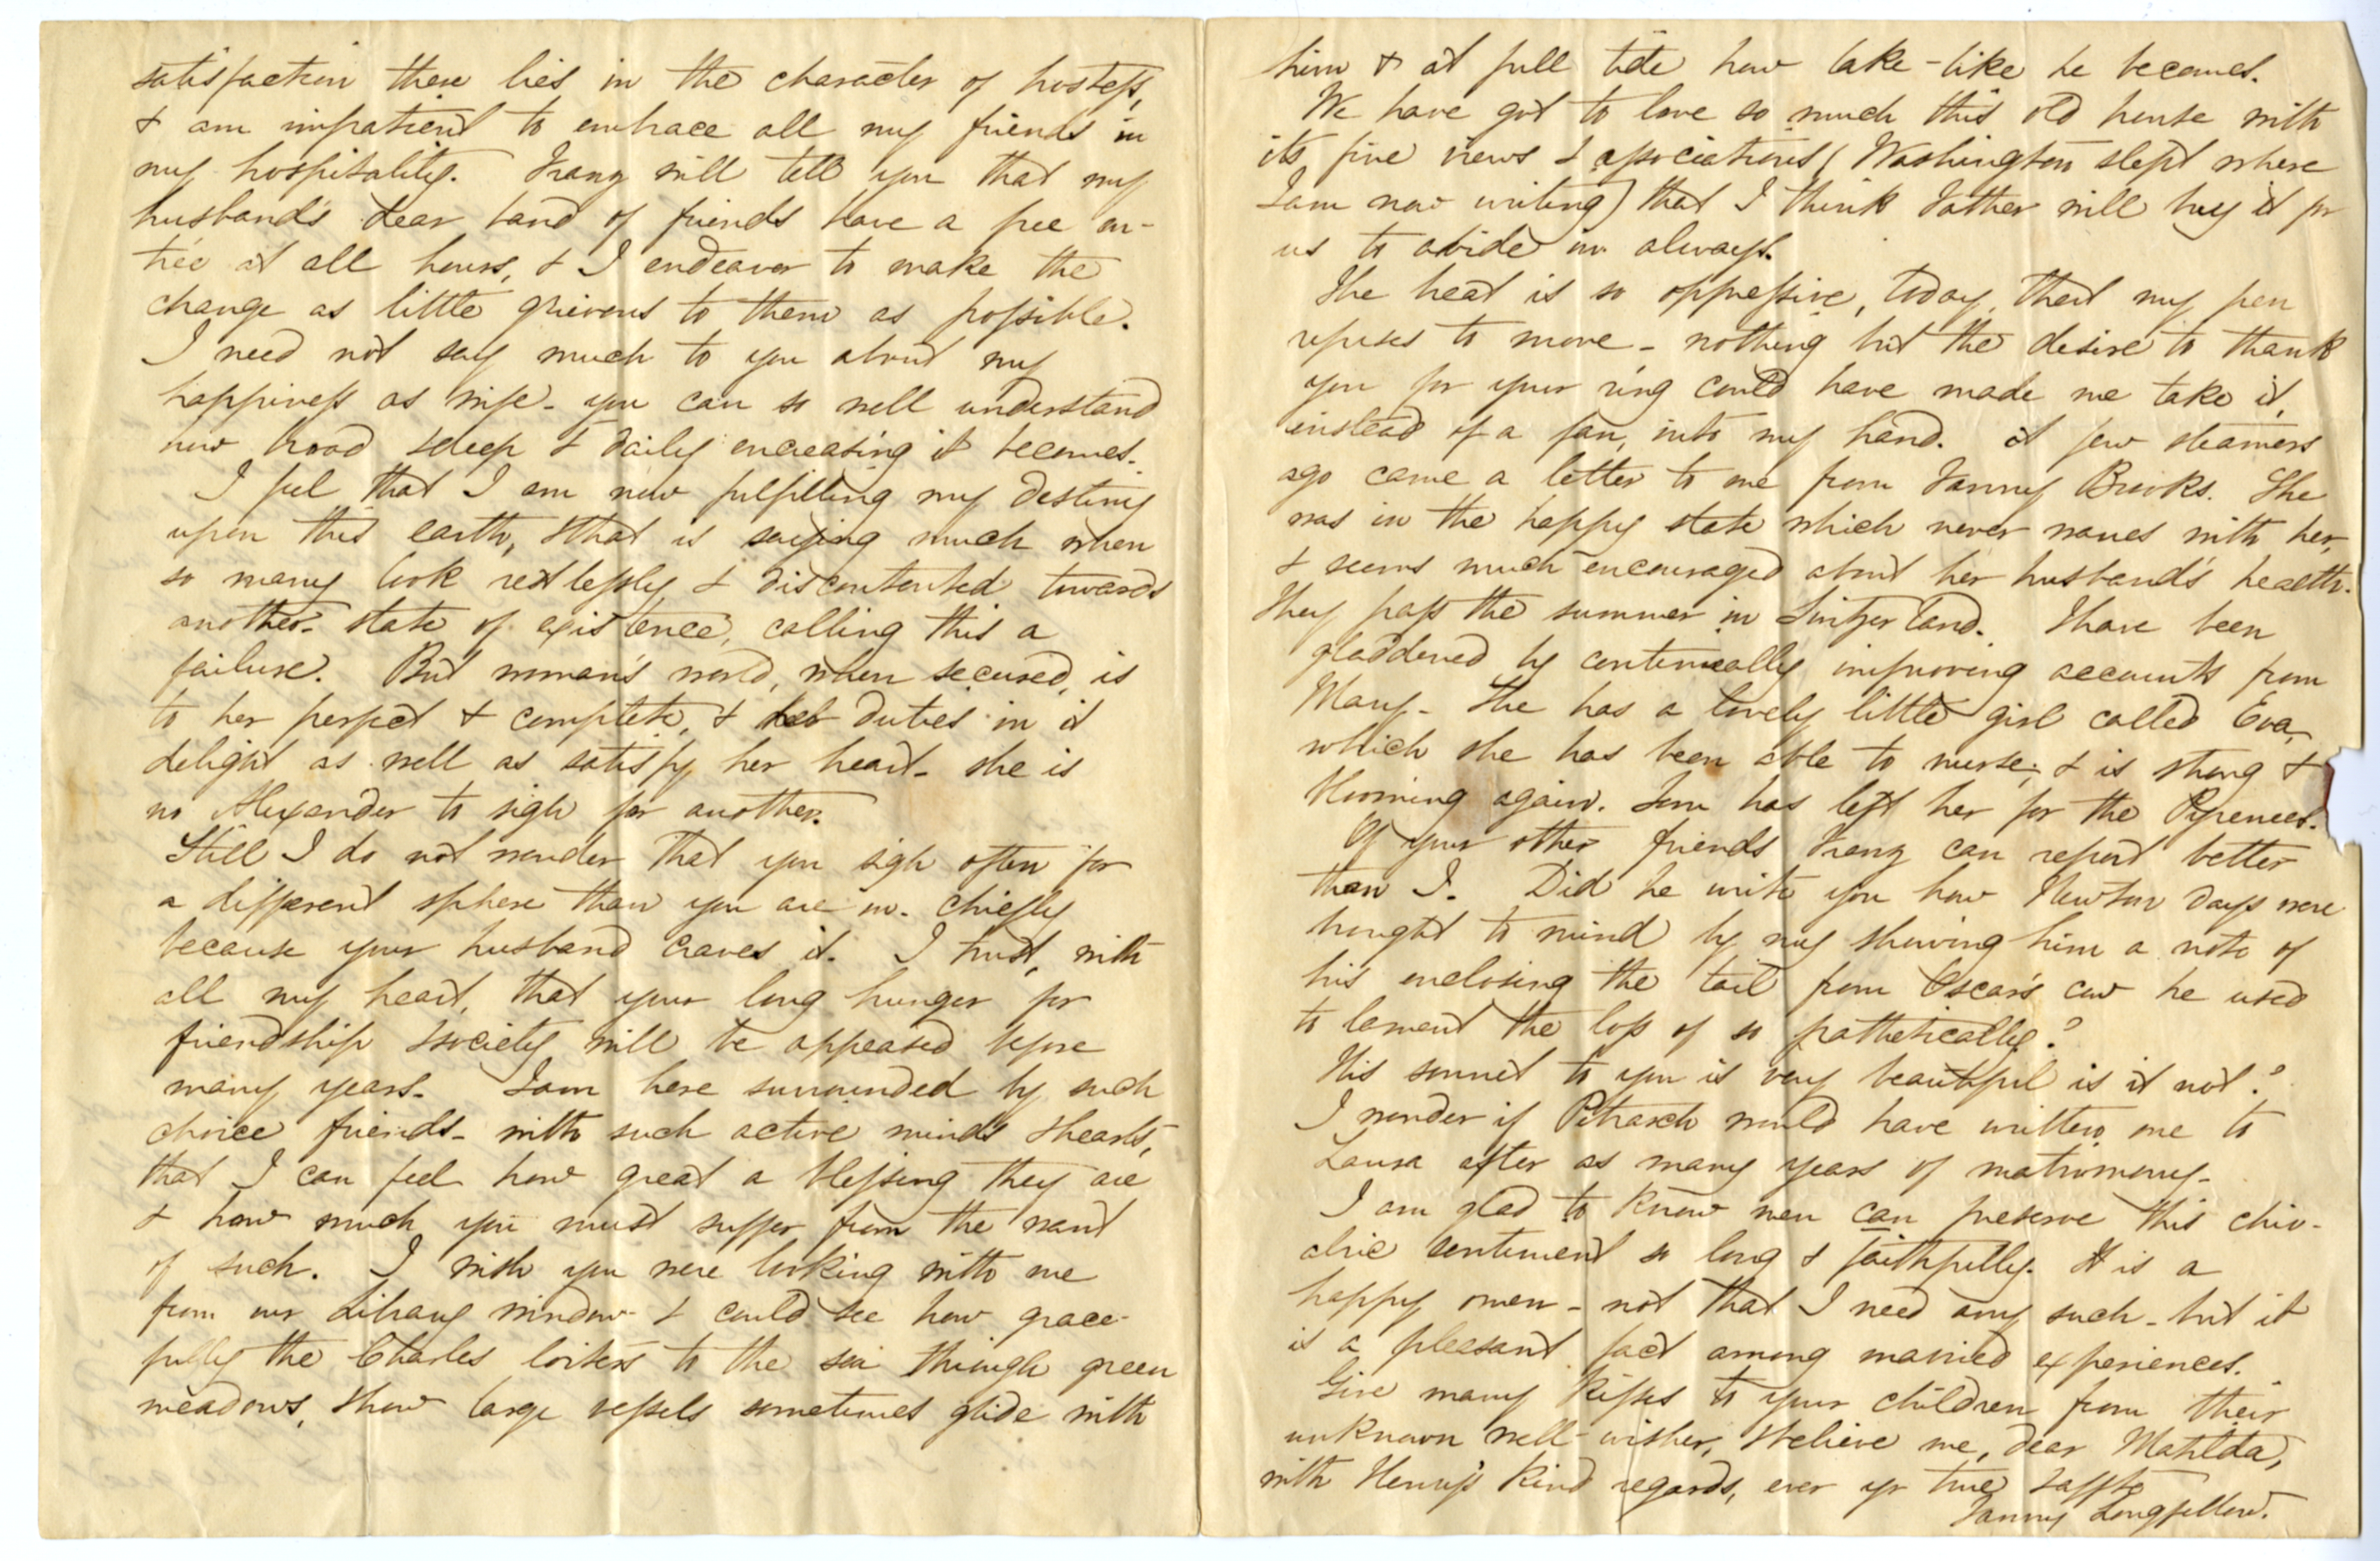 satisfaction there lies in the character of hostess,
& am impatient to embrace all my friends in
my hospitality. Franz will tell you that my
husband's dear band of friends have a free en-
trée at all hours, & I endeavor to make the
change as little grievous to them as possible.
I need not say much to you about my
happiness as wife - you can so well understand
how broad & deep & daily encreasing it becomes.
I feel that I am now fulfilling my destiny
upon this earth, & that is saying much when
so many look restlessly & discontented towards
another state of existence, calling this a
failure. But woman's world, when secured, is
to her perfect & complete, & her duties in it
delight as well as satisfy her heart - she is
no Alexander to sigh for another.
Still I do not wonder that you sigh often for
a different sphere than you are in. chiefly
because your husband craves it. I trust, with
all my heart, that your long hunger for
friendship & society will be appeased before
many years. I am here surrounded by such
choice friends - with such active minds & hearts,
that I can feel how great a blessing they are
& how much you must suffer from the want
of such. I wish you were looking with me
from our Library window & could see how grace-
fully the Charles loiters to the sea through green
meadows, & how large vessels sometimes glide with
him & at full tide how lake-like he becomes.
We have got to love so much this old house with
its fine views & associations (Washington slept where
I am now writing) that I think Father will buy it for
us to abide in always.
The heat is so oppressive, today, that my pen
refuses to move - nothing but the desire to thank
you for your ring could have made me take it,
instead of a fan, into my hand. A few steamers
ago came a letter to me from Fanny Brooks. She
was in the happy state which never wanes with her,
& seems much encouraged about her husband's health.
They pass the summer in Switzerland. I have been
gladdened by continually improving accounts from
Mary - She has a lovely little girl called Eva,
which she has been able to nurse, & is strong &
blooming again. Tom has left her for the Pyrenees.
Of your other friends Franz can report better
than I. Did he write you how Newton days were
brought to mind by my shewing him a note of
his enclosing the tail from Oscar's cow he used
to lament the loss of so pathetically?
His sonnet to you is very beautiful is it not?
I wonder if Petrarch would have written one to
Laura after as many years of matrimony.
I am glad to know men can preserve this chiv-
alric sentiment so long & faithfully. It is a
happy omen - not that I need any such - but it
is a pleasant fact among married experiences.
Give many kisses to your children from their
unknown well-wisher, & believe me, dear Matilda,
with Henry's kind regards, ever yr true & affte
Fanny Longfellow.